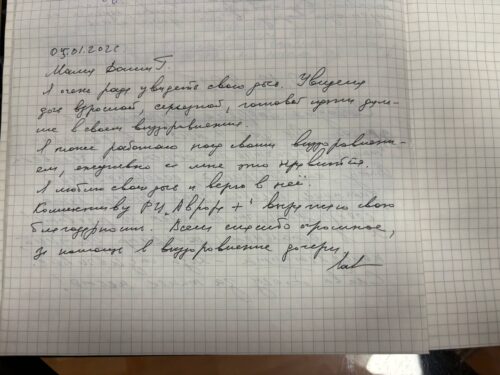 05.01.202
Мама Г.
Я очень рада увидеть свою дочь. Увидела
дочь взрослой, серьезной, готовой идти даль-
ше в своем выздоровлении.
Я тоже работаю над своим выздоровлени-
ем, ежедневно и мне это нравится.
Я люблю свою дочь и верю в неё.
Коллективу РЦ „Аврора +" выражаю свою
благодарность. Всем спасибо огромное,
за помощь в выздоровление дочери.